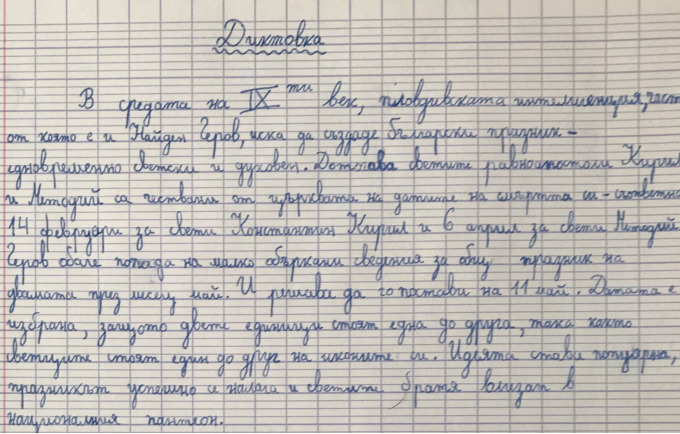 Диктовка
В средата на IX ти век, пловдивската интелигенция, част
от която е и Найден Геров, иска да създаде български празник –
едновременно светски и духовен. Дотогава светите равноапостоли Кирил
и Методий са чествани от църквата на датите на смъртта си – съответно
14 февруари за свети Константин Кирил и 6 април за свети Методий.
Геров обаче попада на малко объркани сведения за общ празник на
двамата през месец май. И решава да го постави на 11 май. Датата е
избрана, защото двете единици стоят една до друга, така както
светците стоят един до друг на иконите си. Идеята става популярна,
празникът успешно се налага и светите братя влизат в
националния пантеон.